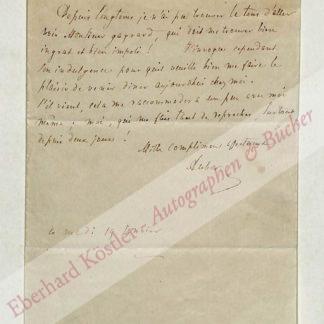 Depuis longtems je n'ai pu trouver le tems d'aller
voir Monsieur gagnard, qui doit me trouver bien
ingrat et bien impoli ! J'invoque cependant
son indulgence pour qu'il veuille bien me faire le
plaisir de venir diner aujourd'hui chez moi.
S'il vient, cela me raccommodera un peu avec moi
même ; moi, qui me fais tant de reproches surtout
depuis deux jours !
Mille complimens affectueux
Auber
14
Eberhard Köstler Autographen & Bücher